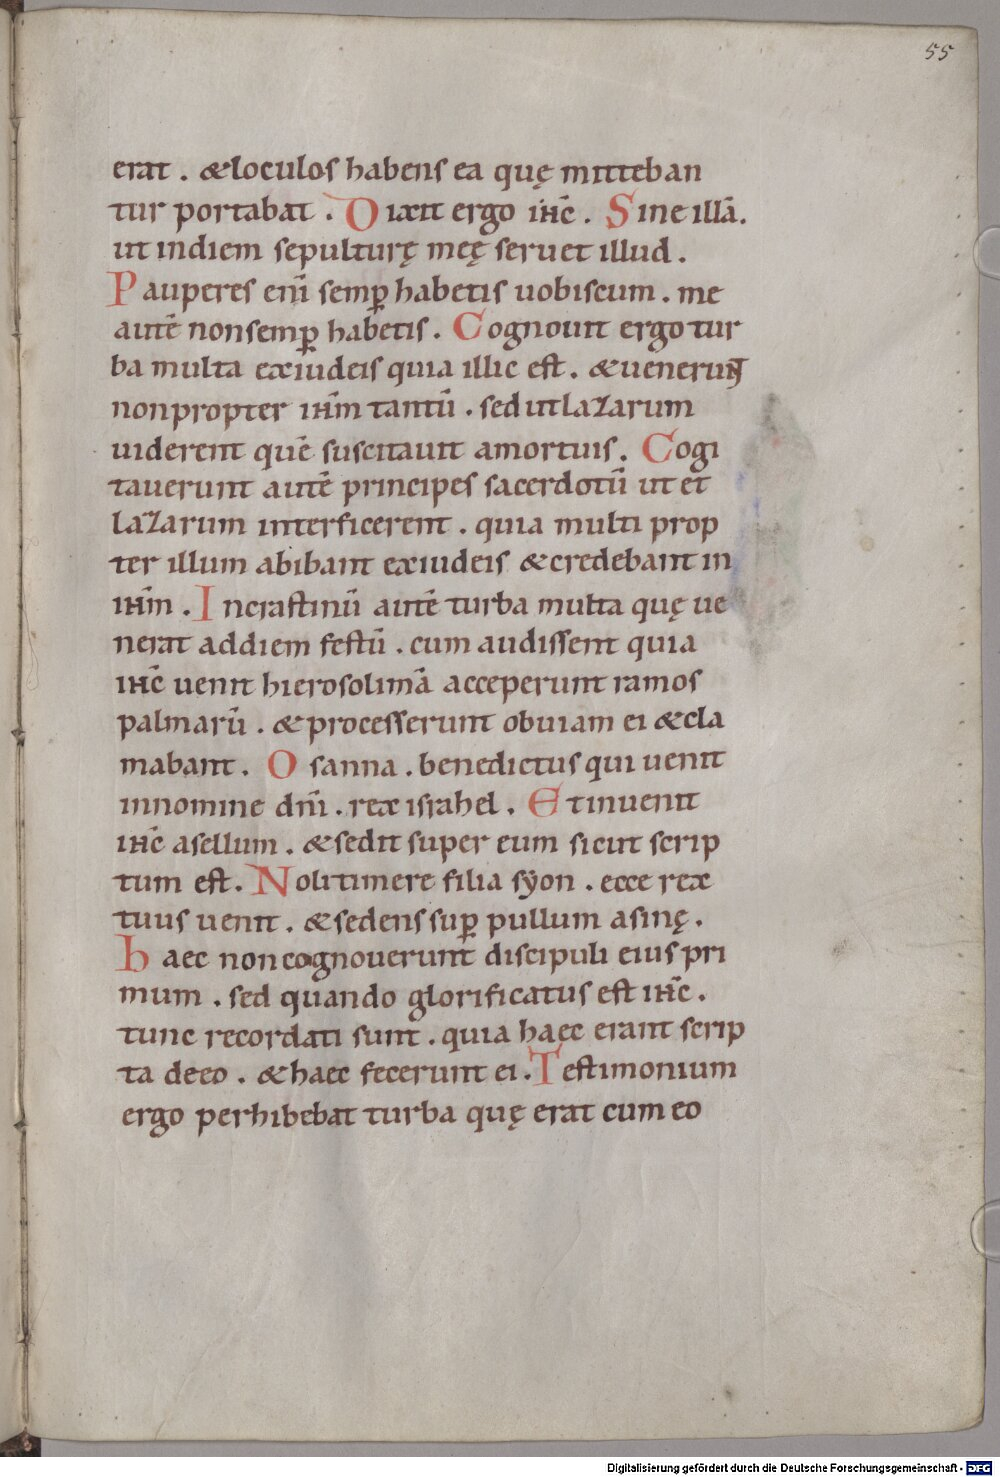 55
erat . &loculos habens ea quę mitteban
tur portabat . Dixit ergo ihc̄ . Sine illā.
ut indiem sepulturę meę seruet illud .
Pauperes eni̅ semꝑ habetis uobiscum . me
autē nonsemꝑ habetis . Cognouit ergo tur
ba multa exiudeis quia illic est . &uenerunt
nonpropter ihm̄ tantū . sed utlazarum
uiderent quē suscitauit amortuis . Cogi
tauerunt autē principes sacerdotū ut et
lazarum interficerent . quia multi prop
ter illum abibant exiudeis &credebant in
ihm̄ . Incrastinū autē turba multa quę ue
nerat addiem festū . cum audissent quia
ihc̄ uenit hierosolimā acceperunt ramos
palmarū . &processerunt obuiam ei &cla
mabant . Osanna . benedictus qui uenit
innomine dn̄i . rex israhel . Etinuenit
ihc̄ asellum . &sedit super eum sicut scrip
tum est . Nolitimere filia syon . ecce rex
tuus uenit . &sedens suꝑ pullum asinę .
haec noncognouerunt discipuli eius pri
mum . sed quando glorificatus est ihc̄ .
tunc recordati sunt . quia haec erant scrip
ta deeo . &haec fecerunt ei . Testimonium
ergo perhibebat turba quę erat cum eo
Digitalisierung gefördert durch die Deutsche Forschungsgemeinschaft - DFG